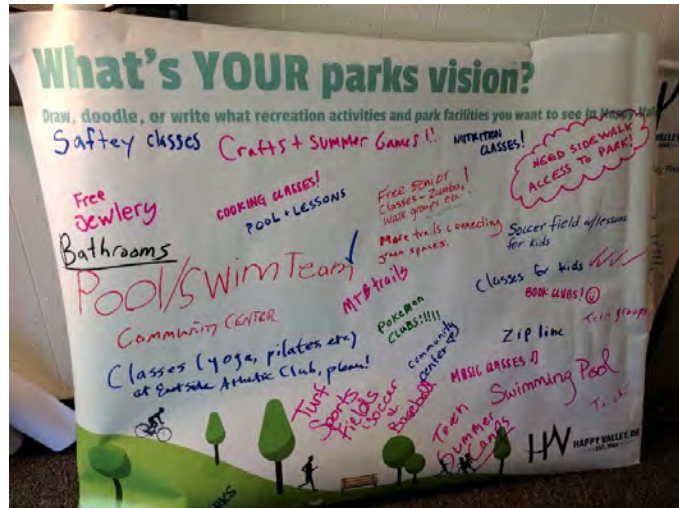 What's YOUR parks vision?
Draw, doodle, or write what recreation activities and park facilities you want to see in Happy Val
Saftey classes
Crafts + Summer Games!!
NUTRITION
CLASSES!
NEED SIDEWALK
ACCESS TO PARK!
Free
Jewlery
COOKING CLASSES!
POOL + LESSONS
Free senior
Classes - Zumba,
Walk groups etc!
More trails connecting
green spaces.
Soccer field w/lessons
for kids
Bathrooms
Pool/Swim Team
MTB trails
Classes for kids
BOOK CLUBS!
Community CENTER
Pokemon
CLUBS:!!!!!
Teen groups
Zip line
Classes (yoga, pilates, etc)
at Eastside Athletic Club, please!
community
center
MUSIC CLASSES
Swimming Pool
Turf
Sports
Fields
Soccer
&
Baseball
Teen
Summer
Camps
HV
HAPPY VALLEY, OR
EST. 1965